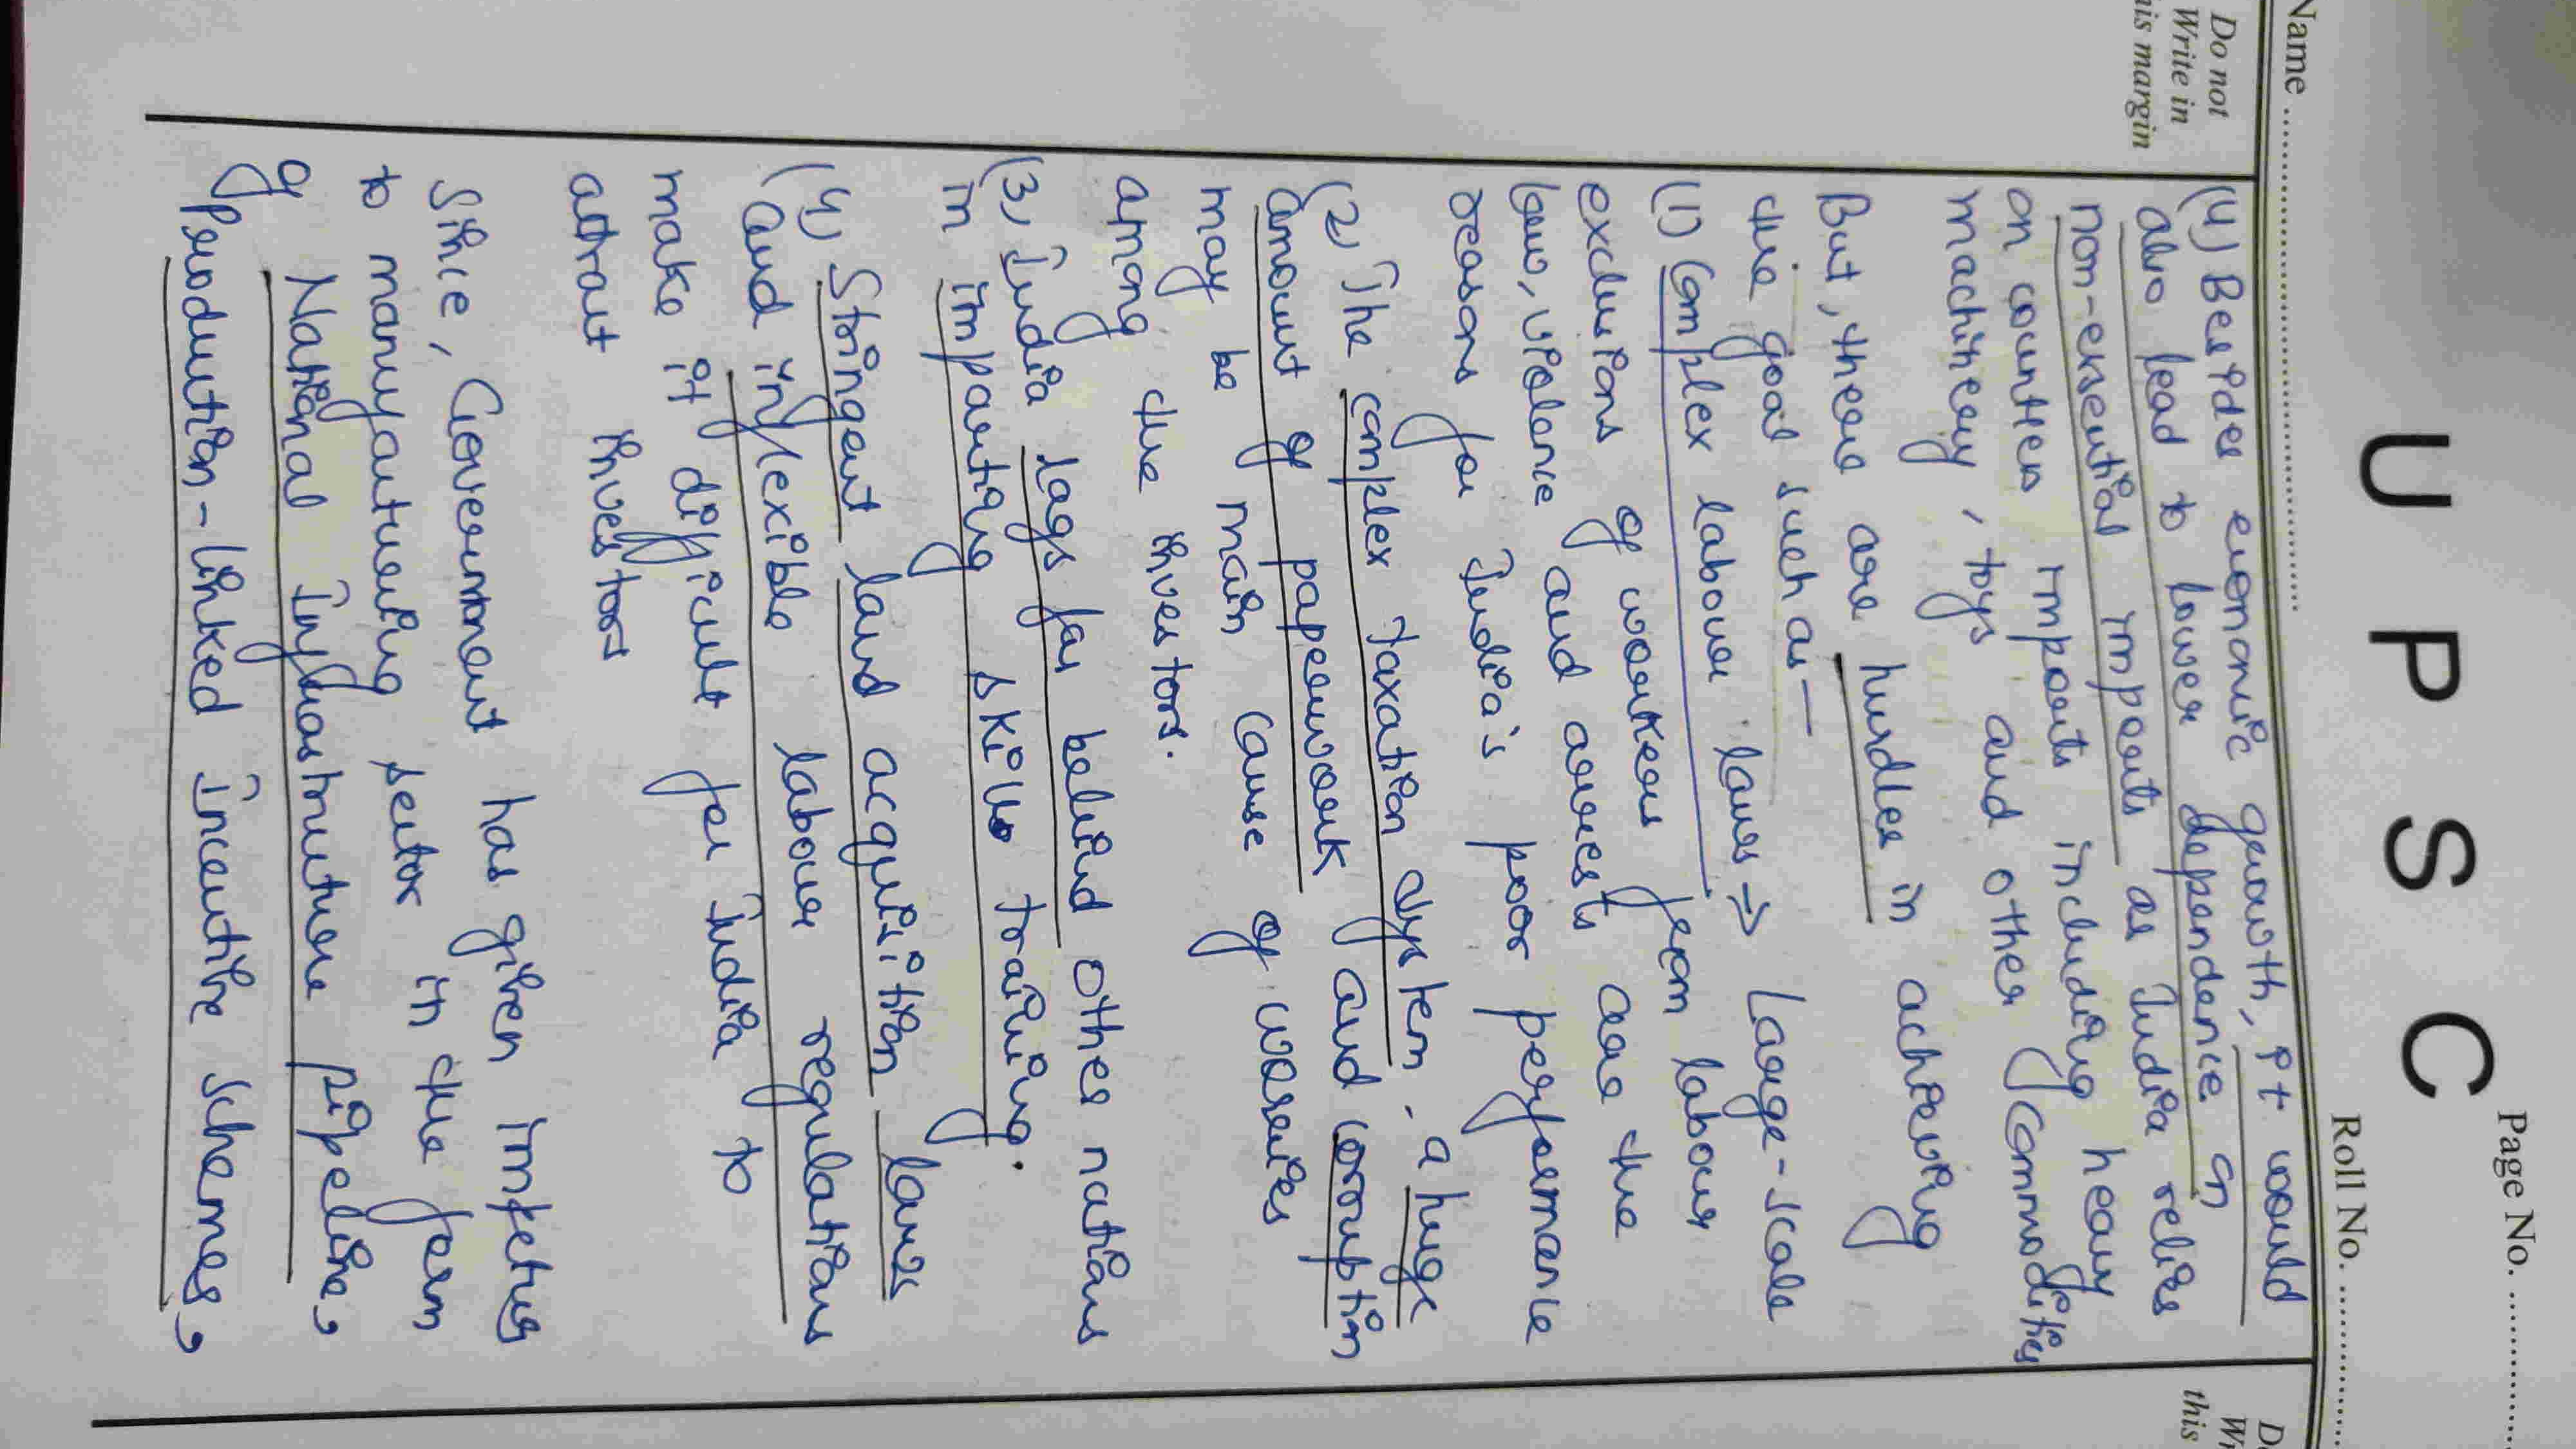 Page No. ....................
U P S C
Name ........................................
Roll No. ....................
Do not
Write in
this margin
(4) Besides economic growth, it would
also lead to lower dependence on
non-essential imports as India relies
on countries imports including heavy
machinery, toys and other commodities
But, there are hurdles in achieving
the goal such as —
(1) Complex labour laws ⇒ Large-scale
exclusions of workers from labour
laws, violence and arrests are the
reasons for India's poor performance
(2) The complex taxation system, a huge
amount of paperwork and corruption
may be main cause of worries
among the investors.
(3) India lags far behind other nations
in imparting skills training.
(4) Stringent land acquisition laws
and inflexible labour regulations
make it difficult for India to
attract investors
Since, Government has given impetus
to manufacturing sector in the form
of National Infrastructure pipeline,
Production-linked incentive schemes,